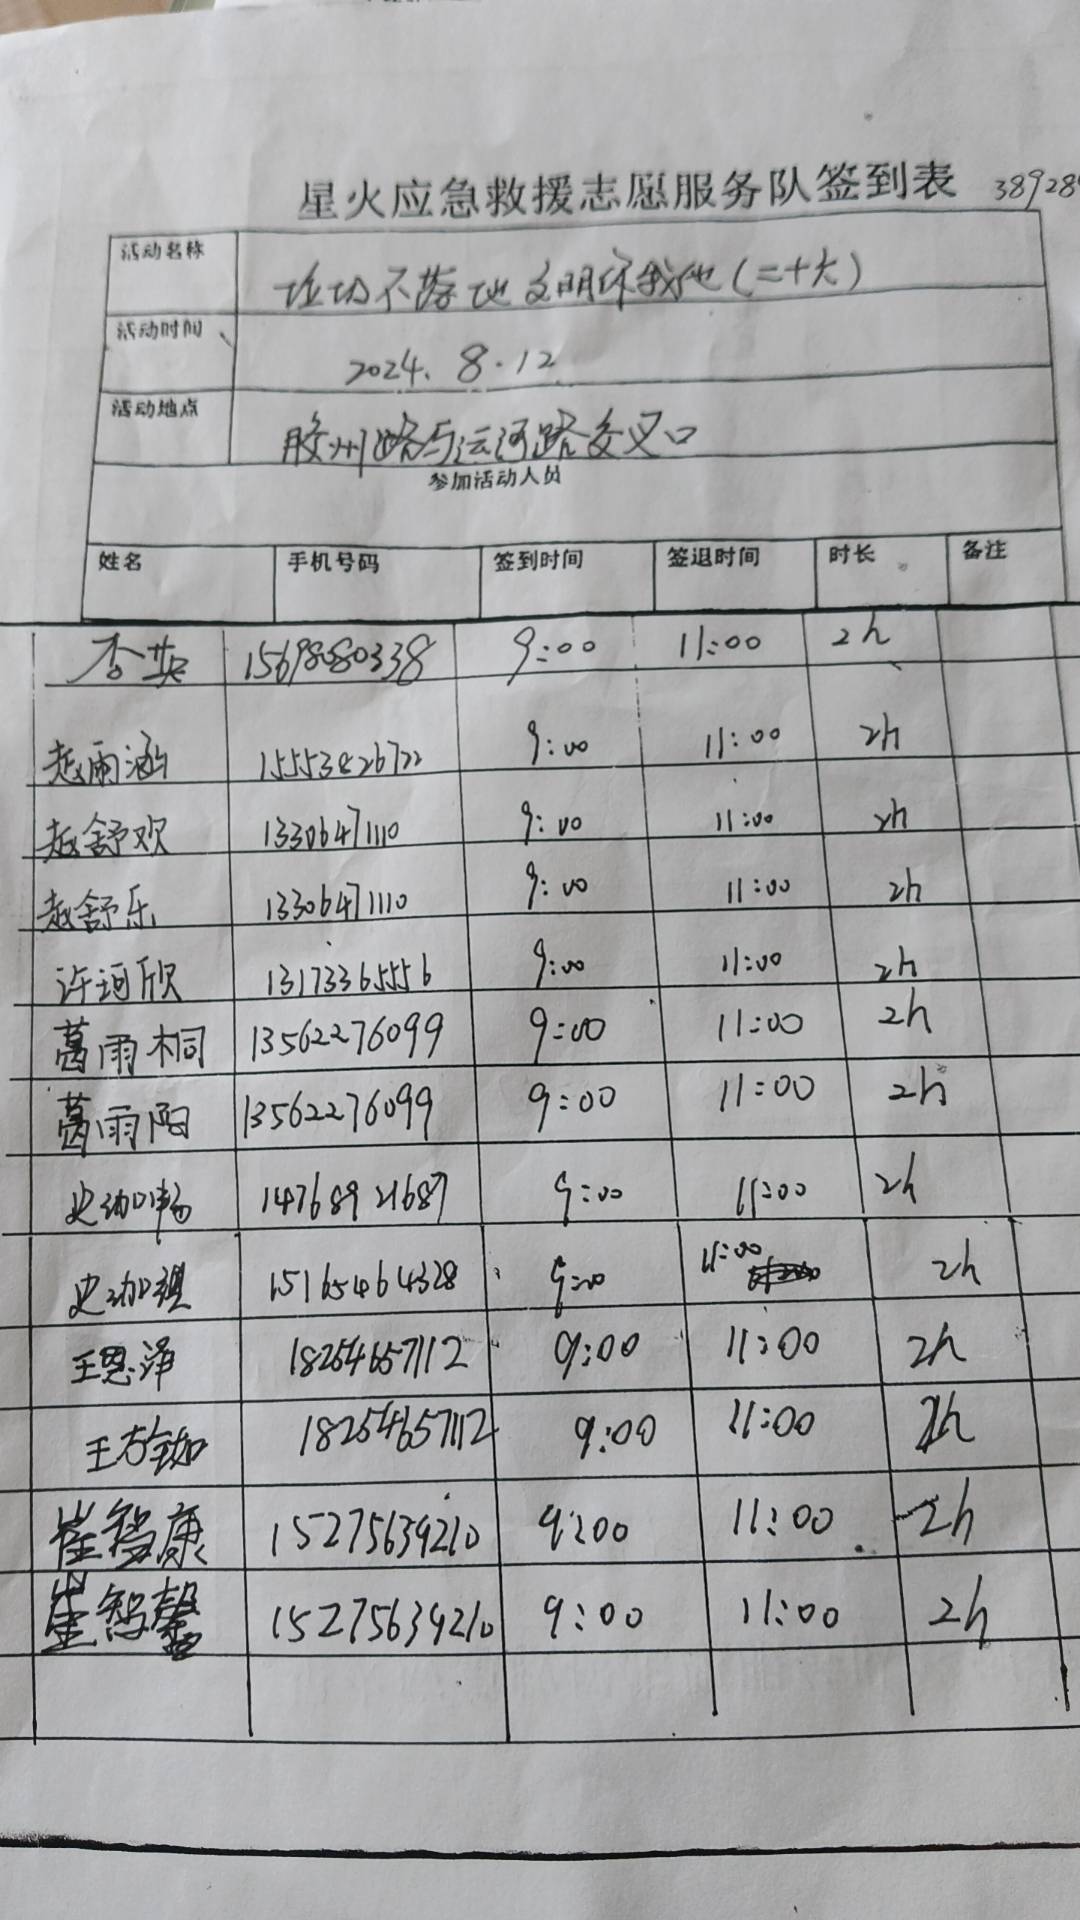 星火应急救援志愿服务队签到表 38928
活动名称 垃圾不落地 文明你我他(二十六)
活动时间 2024.8.12
活动地点 胶州路与运河路交叉口
参加活动人员
姓名 手机号码 签到时间 签退时间 时长 备注
杏英 9:00 11:00 2h
赵雨涵 9:00 11:00 2h
赵舒欢 13306471110 9:00 11:00 2h
赵舒乐 13306471110 9:00 11:00 2h
许珂欣 13173365556 9:00 11:00 2h
葛雨桐 13562276099 9:00 11:00 2h
葛雨阳 13562276099 9:00 11:00 2h
史加畅 14768921687 9:00 11:00 2h
史加祺 15165464328 9:00 11:00 2h
王恩泽 18254657112 9:00 11:00 2h
18254657112 9:00 11:00 2h
崔智康 15275639210 9:00 11:00 2h
崔智馨 15275639210 9:00 11:00 2h